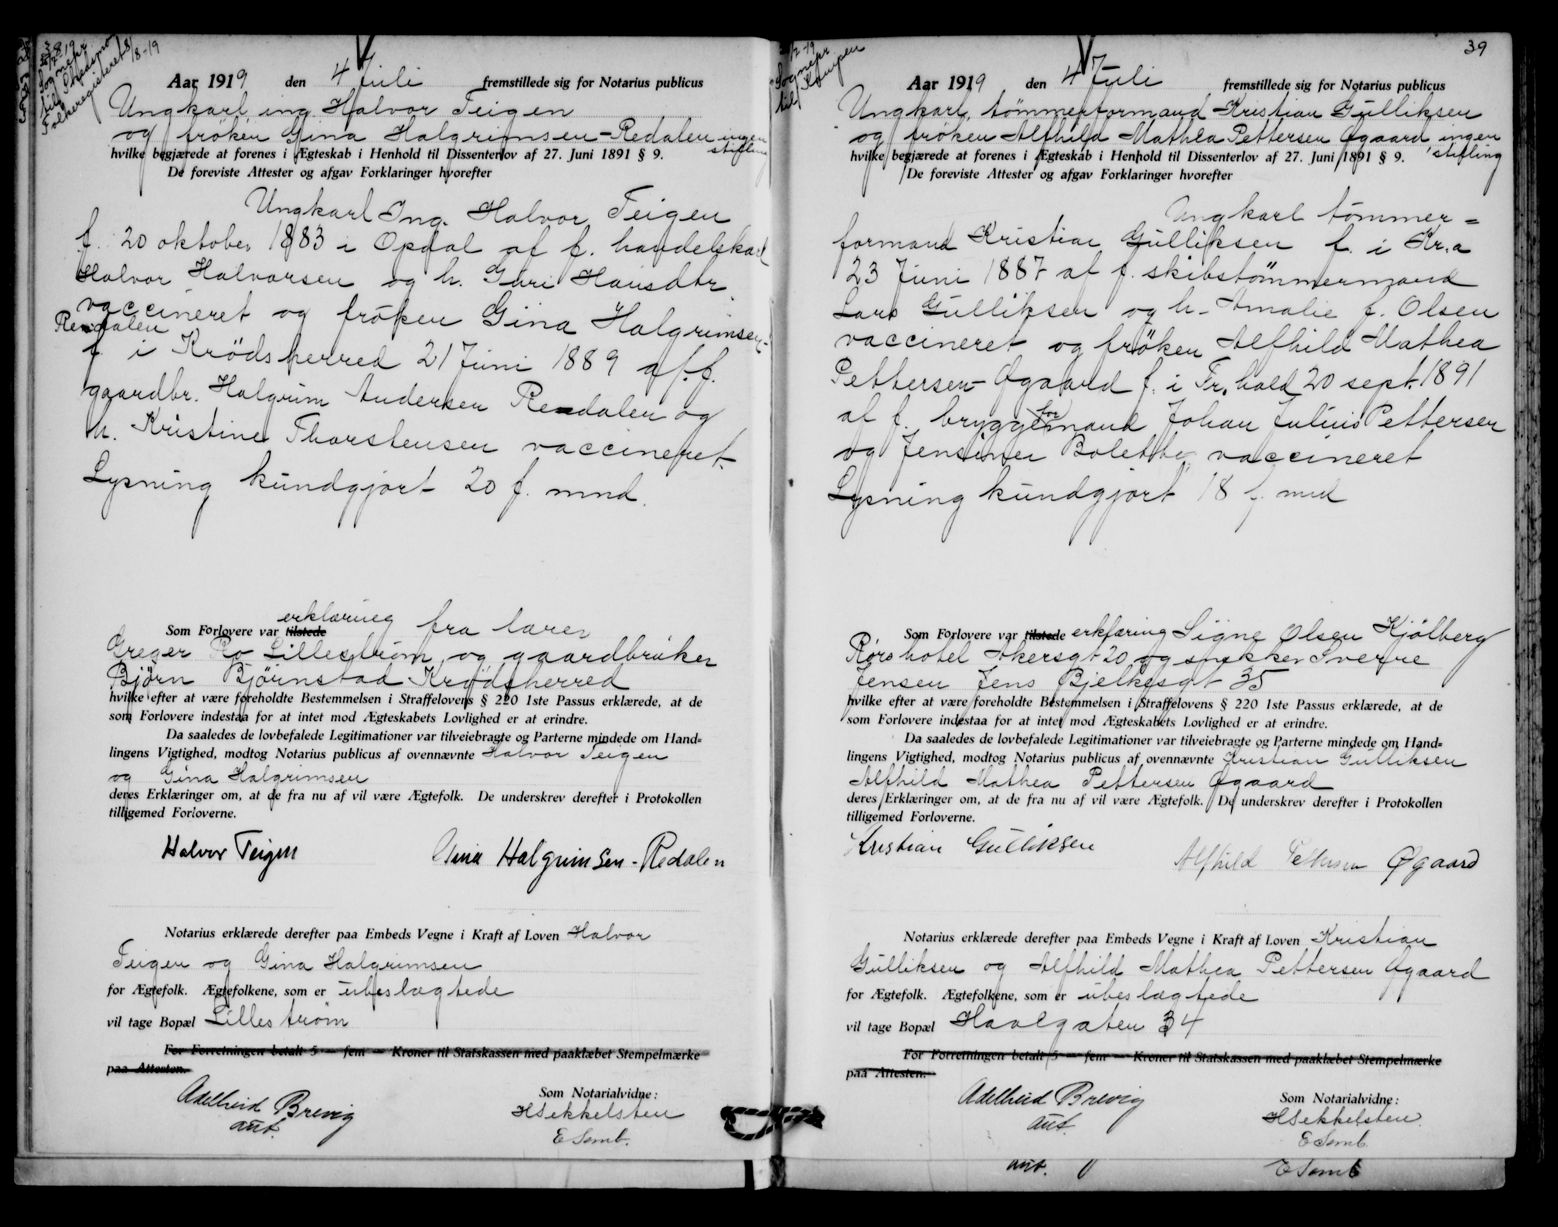 3/8 19
Sognepr
til Skedsmo
Folkeregisteret 8/8-19
Aar 1919 den 4 Juli fremstillede sig for Notarius publicus
Ungkarl ing. Halvor Teigen
og frøken Gina Halgrimsen-Redalen ingen
stilling
hvilke begjærede at forenes i Ægteskab i Henhold til Dissenterlov af 27. Juni 1891 § 9.
De foreviste Attester og afgav Forklaringer hvorefter
Ungkarl Ing. Halvor Teigen
f. 20 oktober 1883 i Opdal af f. handelskarl
Halvor Halvorsen og h. Guri Hansdtr.
vaccineret og frøken Gina Halgrimsen-
Redalen
f. i Krödsherred 21 Juni 1889 af f.
gaardbr. Halgrim Andersen Redalen og
h. Kristine Thorstensen vaccineret.
Lysning kundgjort 20 f. mnd.
erklæring fra lærer
Som Forlovere var tilstede
Greger Ro Lillestrøm og gaardbruker
Bjørn Bjørnstad Krødsherred
hvilke efter at være foreholdte Bestemmelsen i Straffelovens § 220 1ste Passus erklærede, at de
som Forlovere indestaa for at intet mod Ægteskabets Lovlighed er at erindre.
Da saaledes de lovbefalede Legitimationer var tilveiebragte og Parterne mindede om Hand=
lingens Vigtighed, modtog Notarius publicus af ovennævnte Halvor Teigen
og Gina Halgrimsen
deres Erklæringer om, at de fra nu af vil være Ægtefolk. De underskrev derefter i Protokollen
tilligemed Forloverne.
Halvor Teigen Gina Halgrimsen-Redalen
Notarius erklærede derefter paa Embeds Vegne i Kraft af Loven Halvor
Teigen og Gina Halgrimsen
for Ægtefolk. Ægtefolkene, som er ubeslægtede
vil tage Bopæl Lillestrøm
For Forretningen betalt 5 — fem — Kroner til Statskassen med paaklæbet Stempelmærke
paa Attesten.
Adelheid Brevig
aut.
Som Notarialvidne:
H Sekkelsten
E Semb.
39
Sognepr
til Kampen
Aar 1919 den 4 Juli fremstillede sig for Notarius publicus
Ungkarl, tømmerformand Kristian Gulliksen
og frøken Alfhild Mathea Pettersen Øgaard ingen
stilling
hvilke begjærede at forenes i Ægteskab i Henhold til Dissenterlov af 27. Juni 1891 § 9.
De foreviste Attester og afgav Forklaringer hvorefter
Ungkarl tömmer=
formand Kristian Gulliksen f. i Kr.a
23 Juni 1887 af f. skibstömmermand
Lars Gulliksen og h. Amalie f. Olsen
vaccineret og frøken Alfhild Mathea
Pettersen-Øgaard f. i Fr.hald 20 sept. 1891
for
af f. bryggemand Johan Julius Pettersen
og Jensine Bolette vaccineret
Lysning kundgjort 18 f. mnd
Som Forlovere var tilstede erklæring Signe Olsen Kjölberg
Røros hotel Akersgt 20 og snekker Sverre
Jensen Jens Bjelkesgt 35
hvilke efter at være foreholdte Bestemmelsen i Straffelovens § 220 1ste Passus erklærede, at de
som Forlovere indestaa for at intet mod Ægteskabets Lovlighed er at erindre.
Da saaledes de lovbefalede Legitimationer var tilveiebragte og Parterne mindede om Hand=
lingens Vigtighed, modtog Notarius publicus af ovennævnte Kristian Gulliksen
Alfhild Mathea Pettersen Øgaard
deres Erklæringer om, at de fra nu af vil være Ægtefolk. De underskrev derefter i Protokollen
tilligemed Forloverne.
Kristian Gulliksen Alfhild Pettersen Øgaard
Notarius erklærede derefter paa Embeds Vegne i Kraft af Loven Kristian
Gulliksen og Alfhild Mathea Pettersen Øgaard
for Ægtefolk. Ægtefolkene, som er ubeslægtede
vil tage Bopæl Haalgaten 34
For Forretningen betalt 5 — fem — Kroner til Statskassen med paaklæbet Stempelmærke
paa Attesten.
Adelheid Brevig
aut.
Som Notarialvidne:
H Sekkelsten.
E Semb.
aut. E Semb